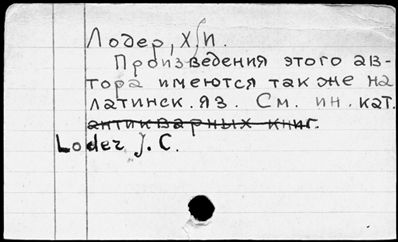 Лодер, Х.И.
Произведения этого ав-
тора имеются также на
латинск. яз. См. ин. кат.
антикварных книг.
Loder J. C.